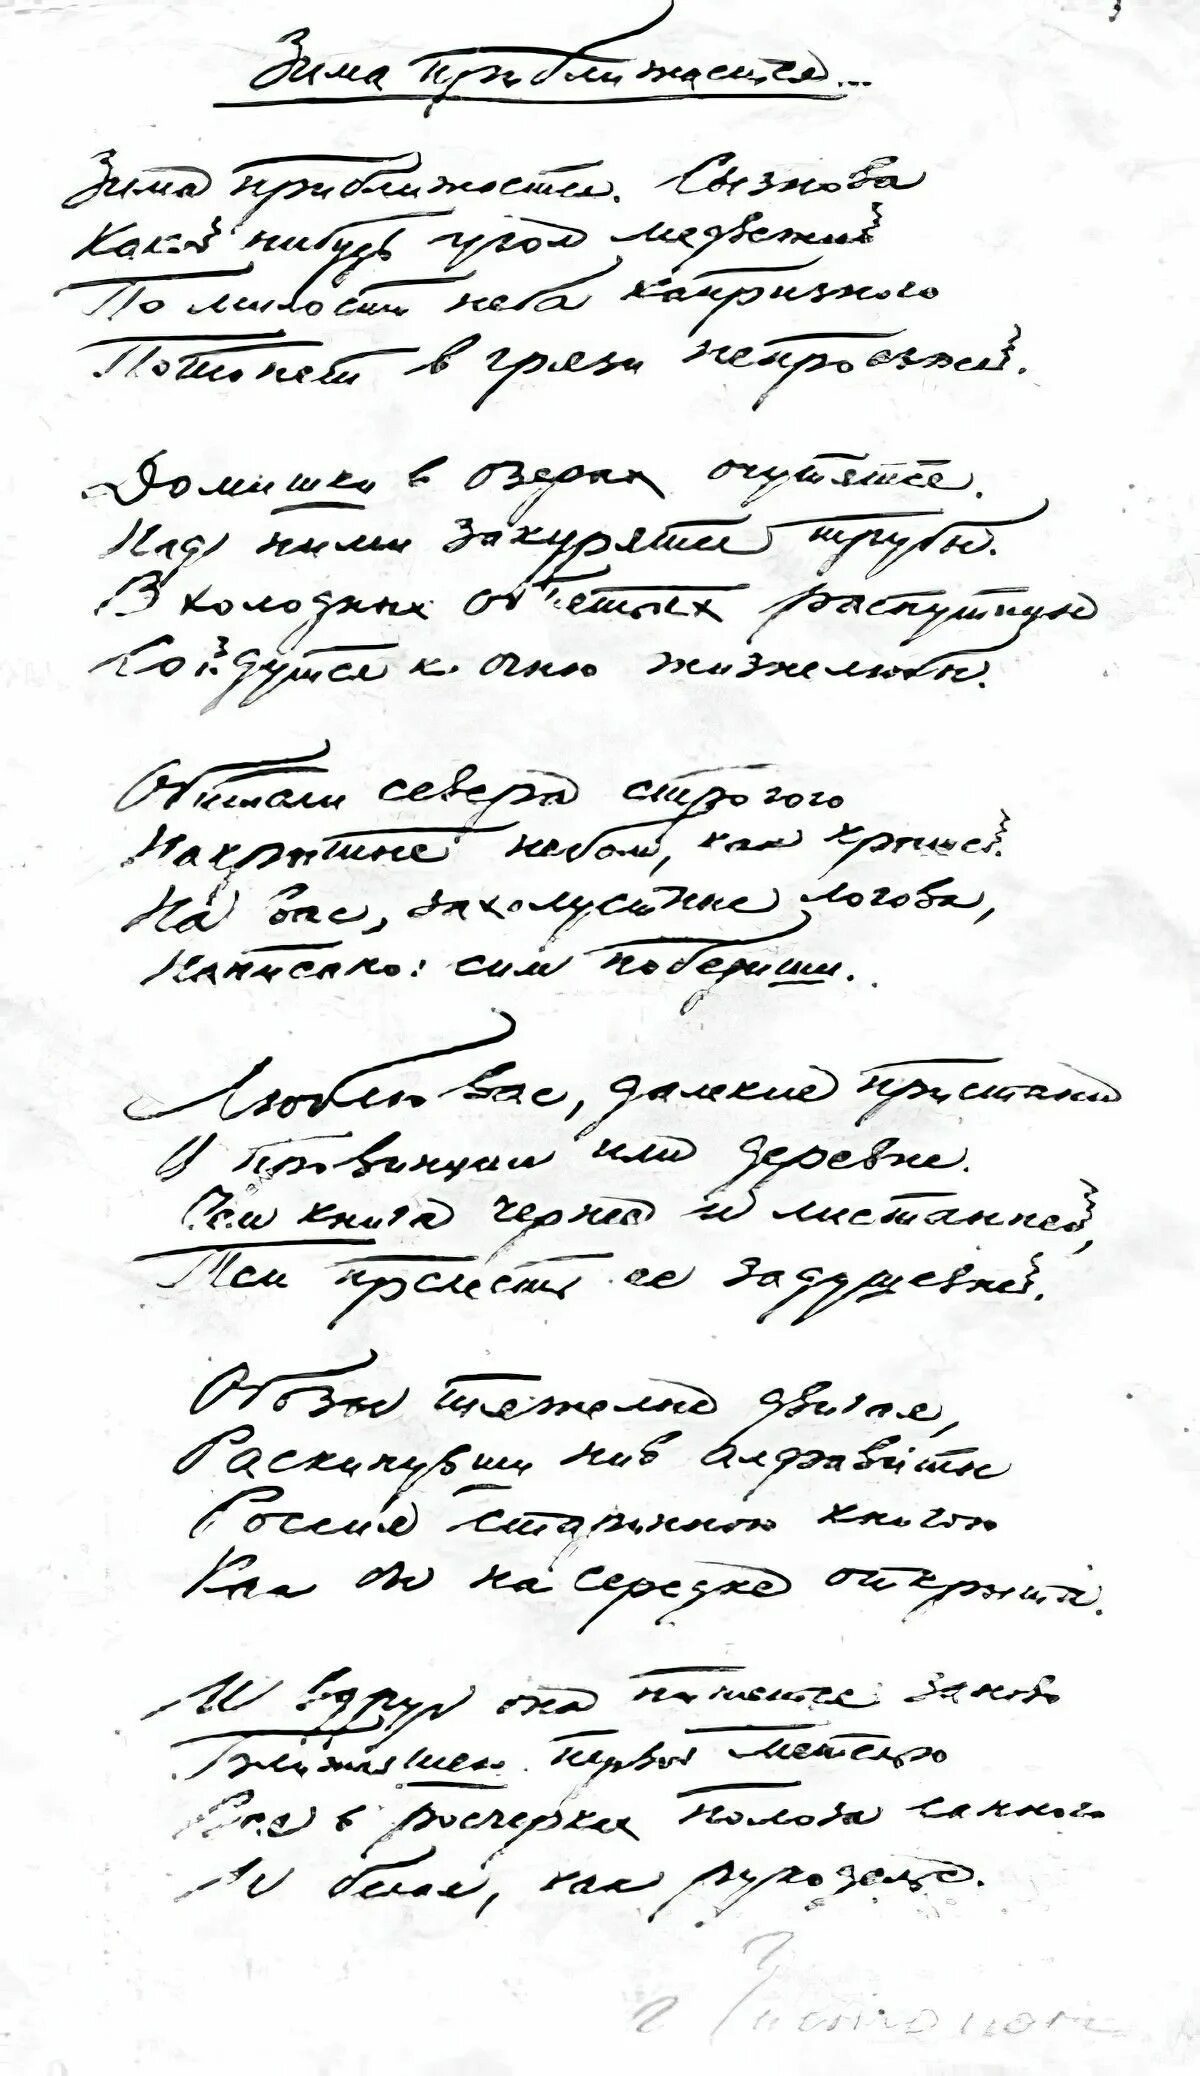 Зима приближается...
Зима приближается. Сызнова
Какой нибудь угол медвежий
По милости неба капризного
Потонет в грязи непроезжей.
Домишки в озерах очутятся.
Над ними закурятся трубы.
В холодных объятьях распутицы
Сойдутся к огню жизнелюбы.
Обитали севера строгого
Накрытые небом, как крышей.
На вас, захолустные логова,
Написано: сим победиши.
Люблю вас, далекие пристани
В провинции или деревне.
Чем книга чернее и листанней,
Тем прелесть ее задушевней.
Обозы тяжелые двигая,
Раскинувши нив алфавиты
Россия старинною книгою
Как бы на середке открыта.
И вдруг она пишется заново
Ближайшею первой метелью
Вся в росчерках полоза санного
И белая, как рукоделье.